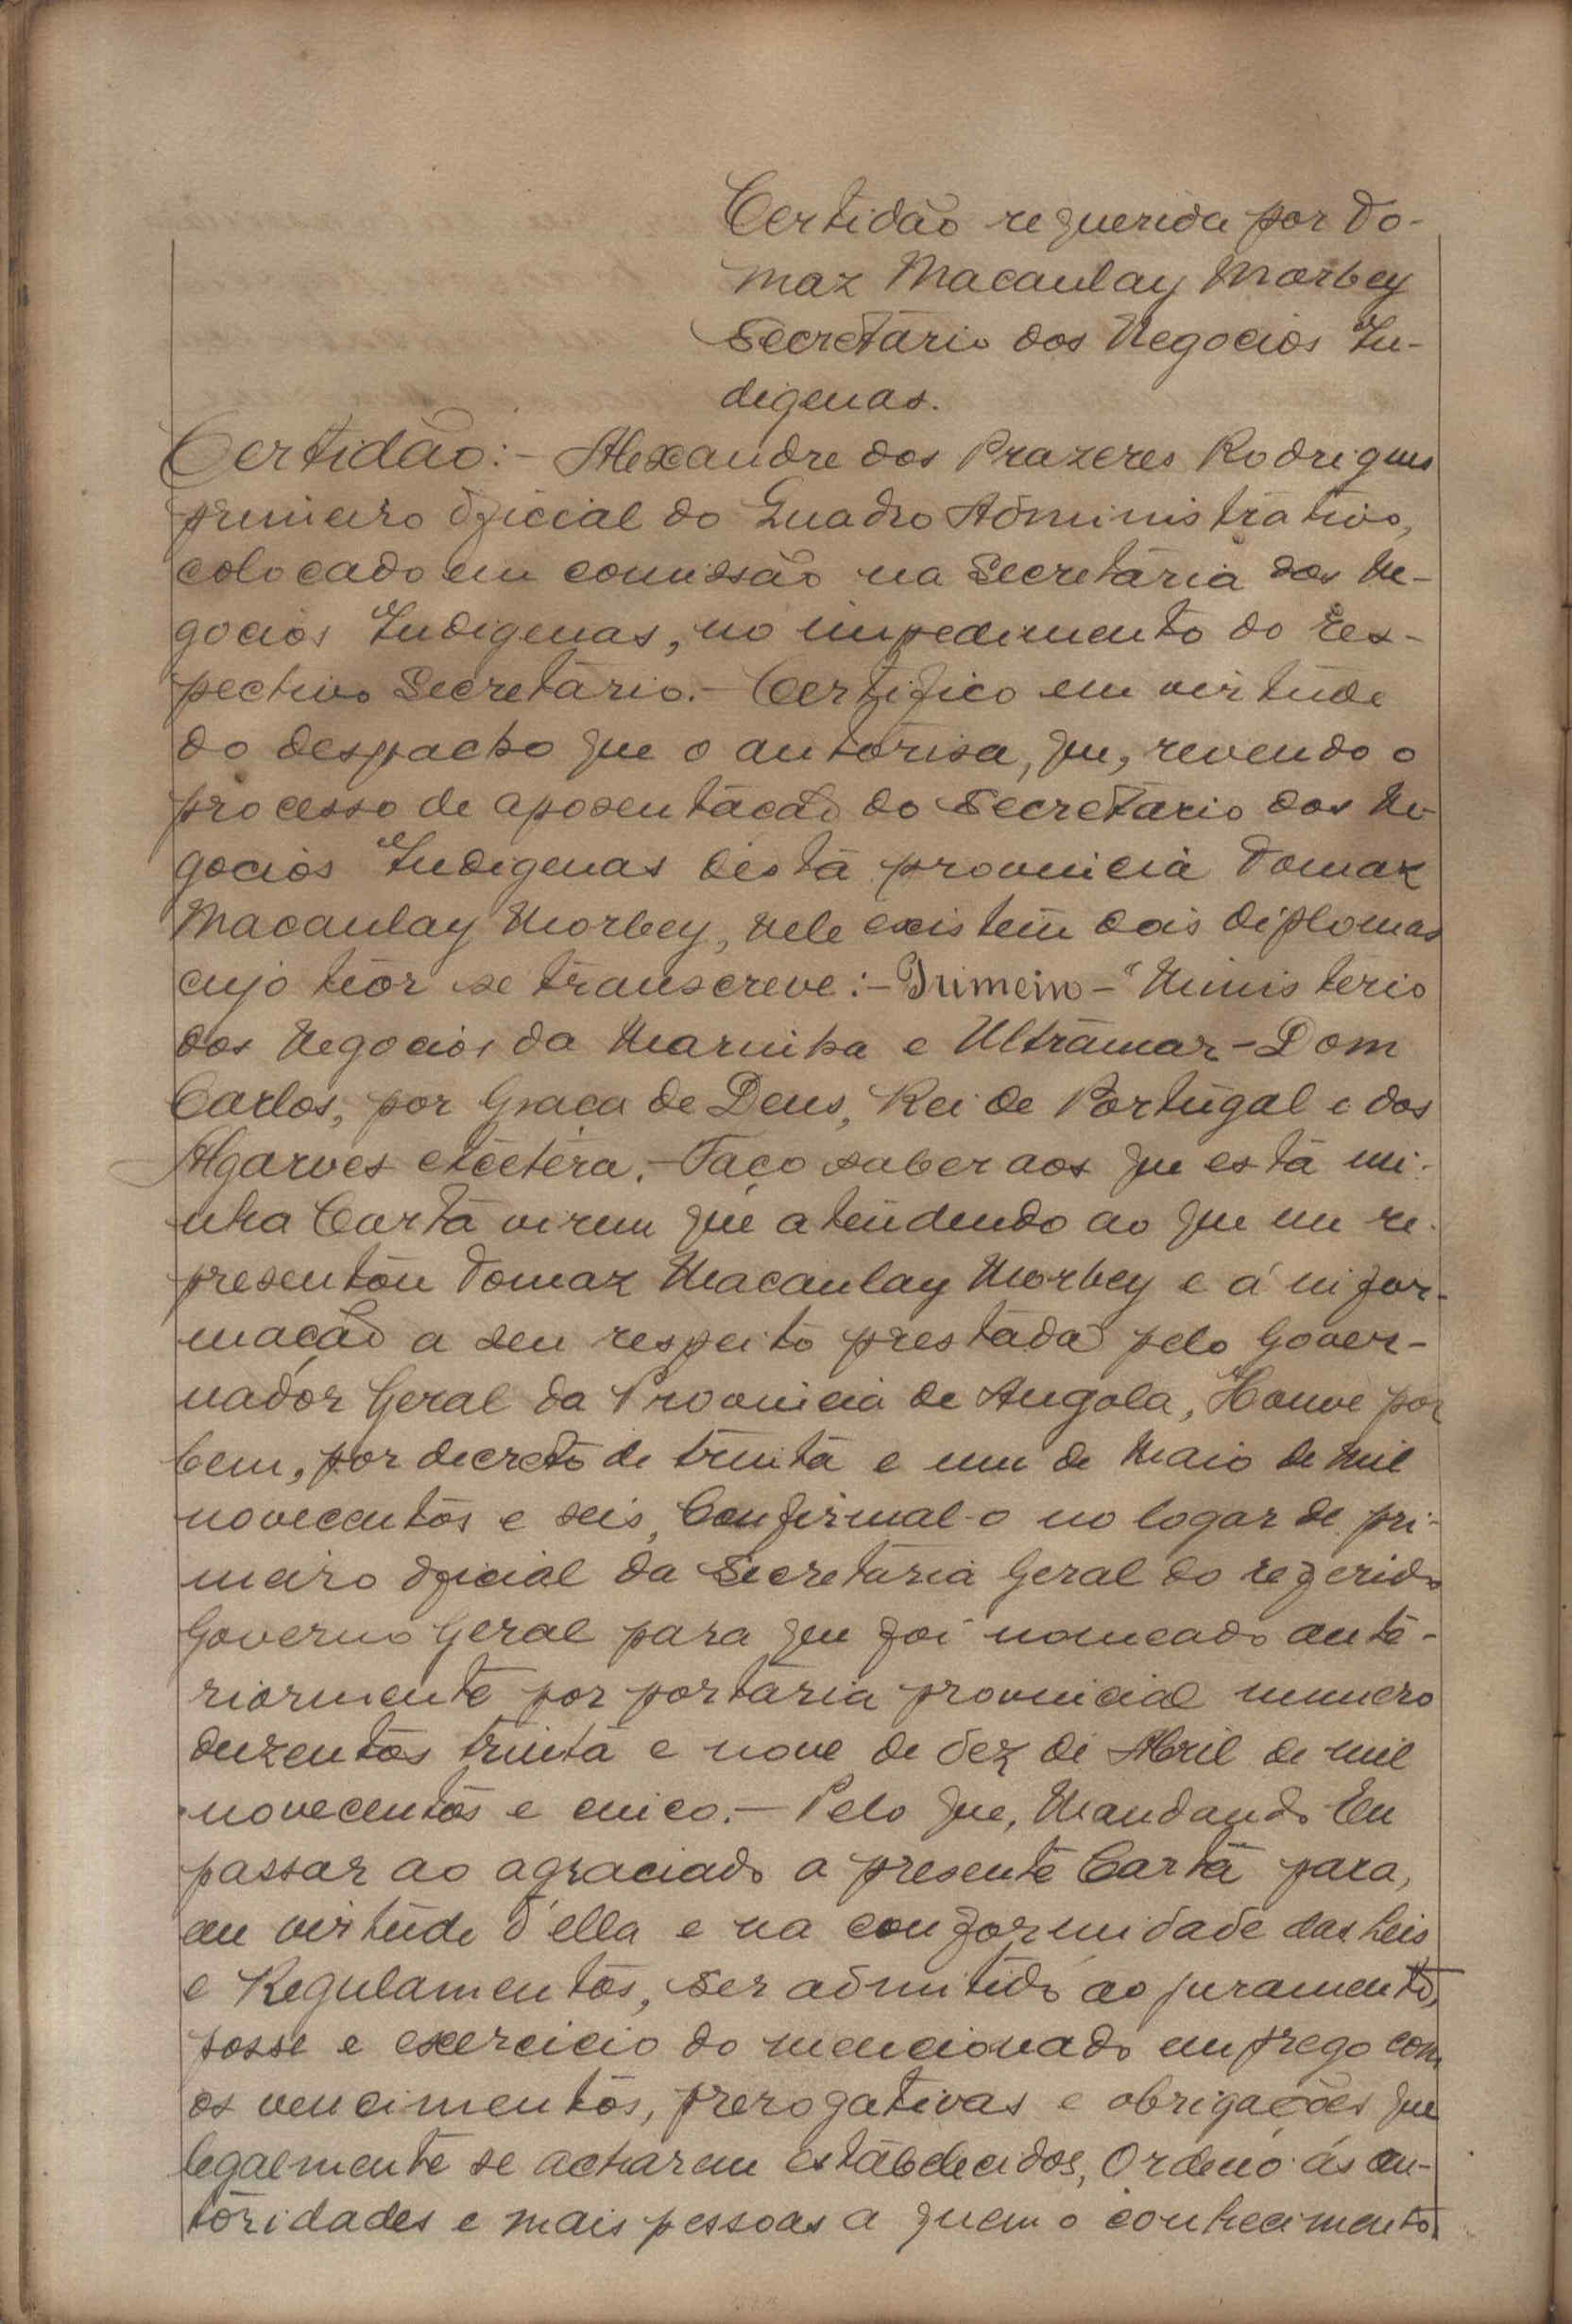 Certidão requerida por To-
maz Macaulay Morbey
Secretario dos Negocios In-
digenas.
Certidão:- Alexandre dos Prazeres Rodrigues
primeiro oficial do Quadro Administrativo,
colocado em comissão na Secretaria dos Ne-
gocios Indigenas, no impedimento do res-
pectivo Secretario.- Certifico em virtude
do despacho que o autorisa, que, revendo o
processo de aposentação do Secretario dos Ne-
gocios Indigenas desta provincia Tomaz
Macaulay Morbey, nele existem dois diplomas
cujo teor se transcreve:- Primeiro - "Ministerio
dos Negocios da Marinha e Ultramar - Dom
Carlos, por Graça de Deus, Rei de Portugal e dos
Algarves etcetera.- Faço saber aos que esta mi-
nha Carta virem que atendendo ao que me re-
presentou Tomaz Macaulay Morbey e á infor-
mação a seu respeito prestada pelo Gover-
nador Geral da Provincia de Angola, Houve por
bem, por decreto de trinta e um de Maio de mil
novecentos e seis, Confirmal-o no logar de pri-
meiro oficial da Secretaria Geral do referido
Governo Geral para que foi nomeado ante-
riormente por portaria provincial numero
duzentos trinta e nove de dez de Abril de mil
novecentos e cinco.- Pelo que, Mandando Eu
passar ao agraciado a presente Carta para,
em virtude d'ella e na conformidade das Leis
e Regulamentos, ser admitido ao juramento,
posse e exercicio do mencionado emprego com
os vencimentos, prerogativas e obrigações que
legalmente se acharem estabelecidos, Ordeno ás au-
toridades e mais pessoas a quem o conhecimento